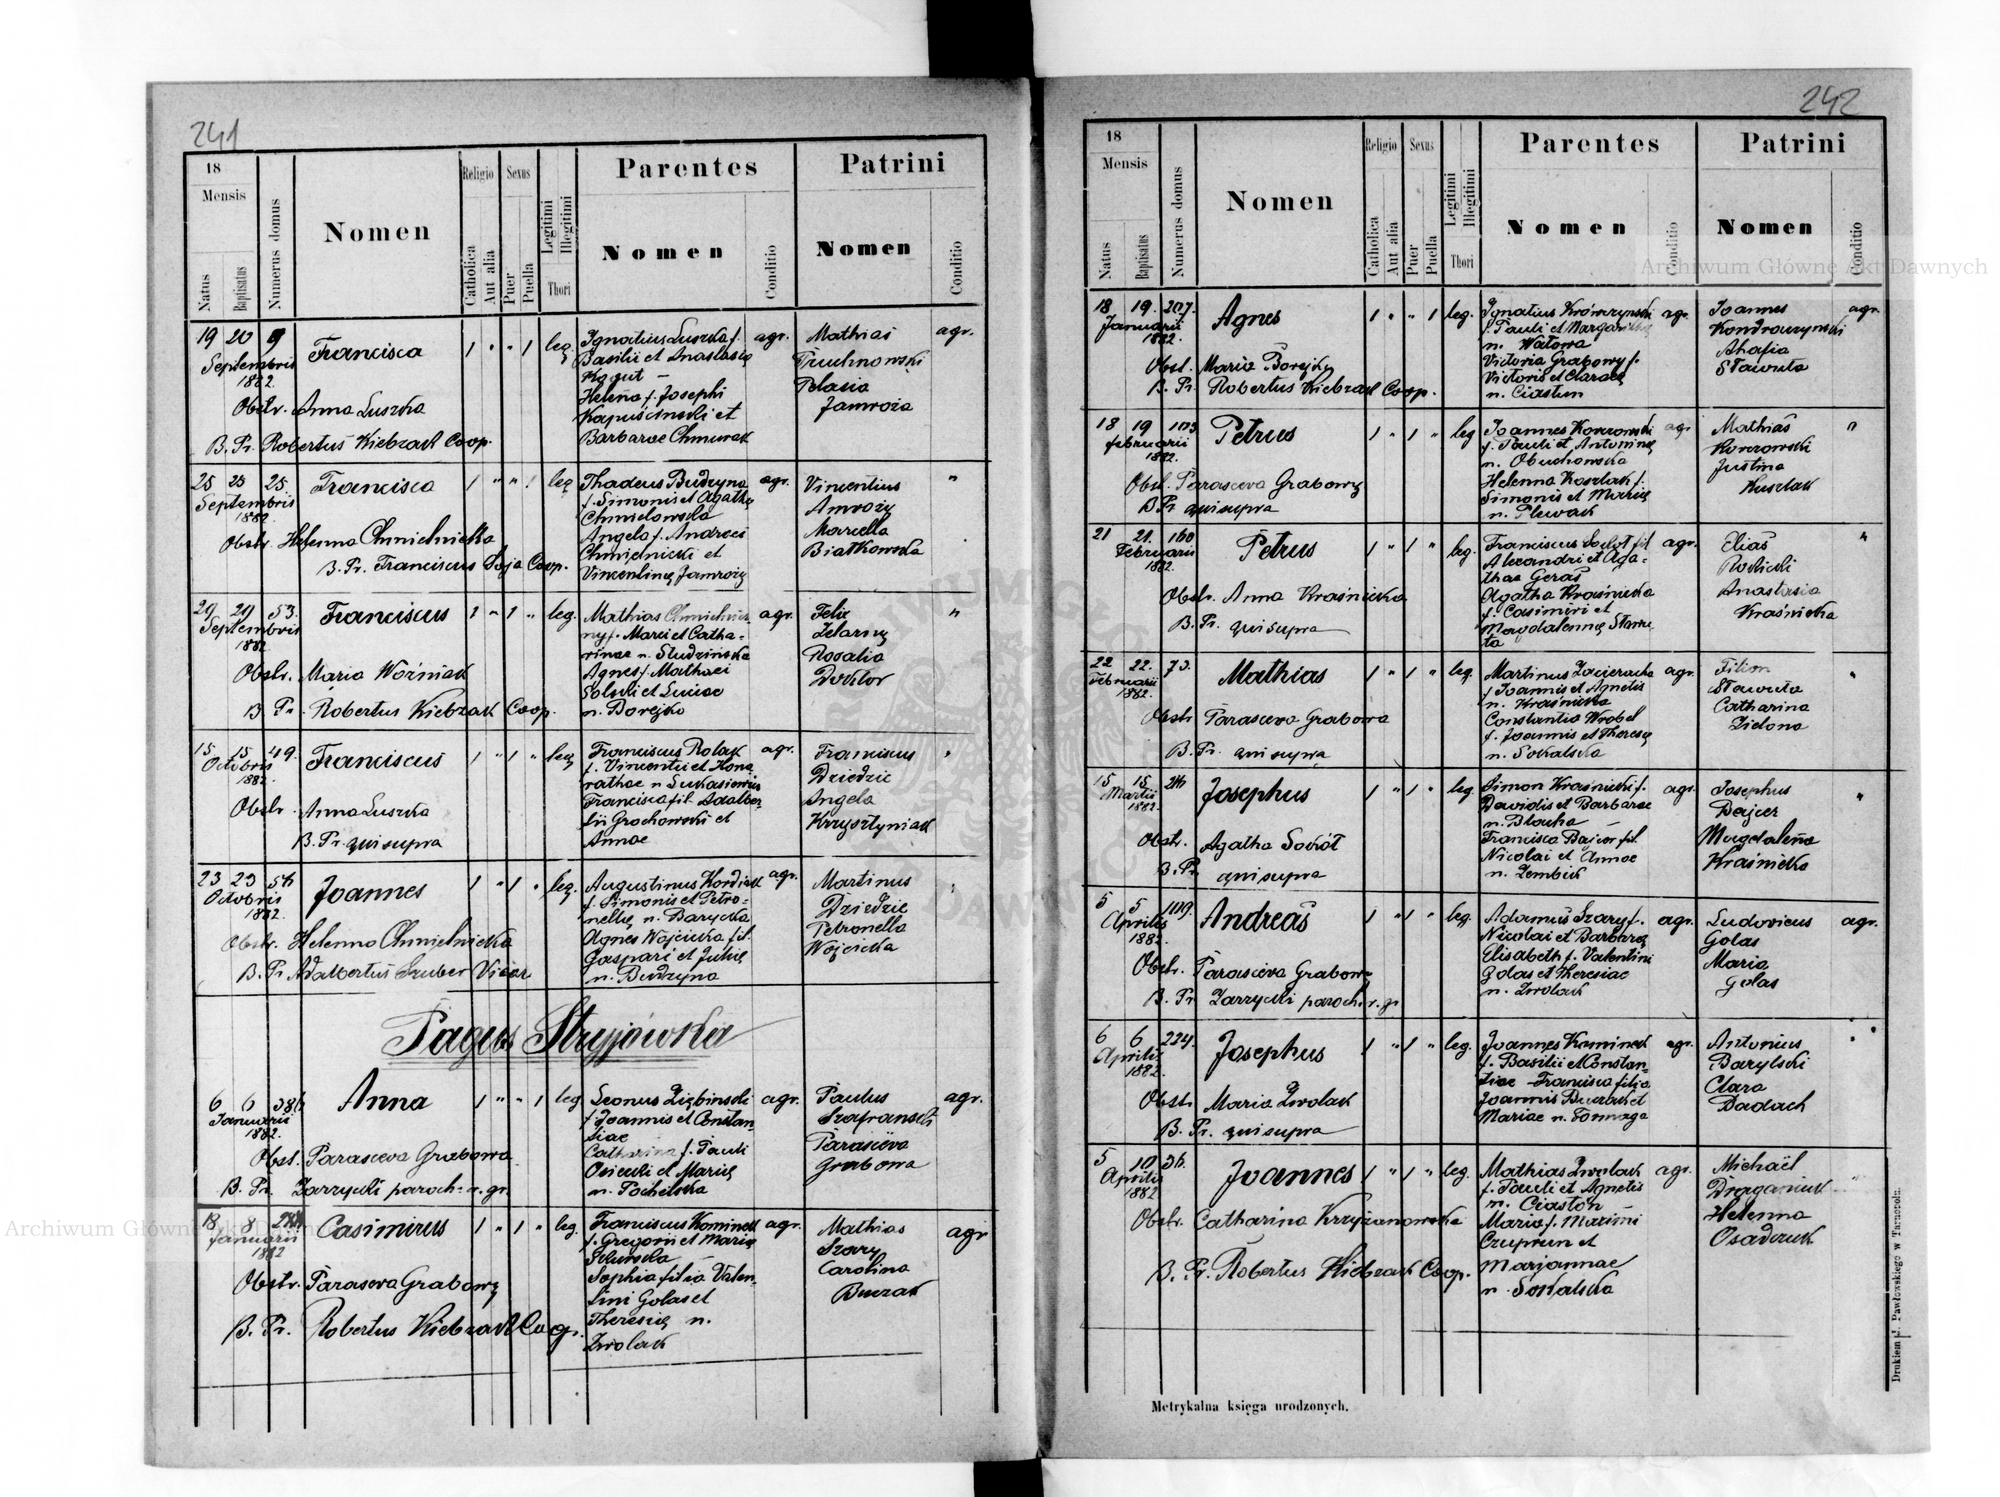 241
18
Mensis
Natus
Baptisatus
Numerus domus
Nomen
Religio
Catholica
Aut alia
Sexus
Puer
Puella
Legitimi
Illegitimi
Thori
Parentes
Nomen
Conditio
Patrini
Nomen
Conditio
19 20 9 Francisca 1 " " 1 leg. Ignatius Luszka f. agr. Mathias agr.
Septembris Basilii et Anastasia
1882. Kogut –
Helena f. Josephi Pelasia
Obstr. Anna Luszka Kapuścinski et Jamroza
B. Pr. Robertus Kiebzak Coop. Barbarae Chmurak
25 25 25. Francisca 1 " " 1 leg Thadeus Budzyna agr. Vincentius "
Septembris f. Simonis et Agatha Amrozy
1882. Chmielowska Marcella
Obstr. Helenna Chmielnicka Angela f. Andreei Białkowska
Chmielnicki et
B. Pr. Franciscus Soja Coop. Vincentinę Jamrozy
29 29 53. Franciscus 1 " 1 " leg. Mathias agr. Felix "
Septembris Marci et Catha- Zelarny
1882 rinae n. Studzińska Rosalia
Obstr. Maria Woźniak Agnes f. Mathaei Doktor
Solski et Luciae
B Pr. Robertus Kiebzak Coop. n. Borejko
15 15 49. Franciscus 1 " 1 " leg Franciscus Rolak agr. Franciscus "
Octobris f. Vincentii et Hono Dziedzic
1882. rathae n Lukasiewicz Angela
Obstr. Anna Luszka Francisca fil. Adalber- Krzysztyniak
tii Grochowski et
B. Pr. qui supra Annae
23 23 54 Joannes 1 " 1 " leg. Augustinus Kordiak agr. Martinus
Octobris f. Simonis et Petro- Dziedzic
1882. nellę n. Barycka Petronella
Obstr. Helenna Chmielnicka Agnes Wojcicka fil. Wojcicka
Gaspari et Julię
B. Pr. Adalbertus Szuber Vicar n. Budzyna
Pagus Stryjówka
6 6 386 Anna 1 " " 1 leg Leonus Ziębinski agr. Paulus agr.
Januarii f. Joannis et Constan- Szafranski
1882. tiae Parascewa
Obst. Parascewa Grabowa Catharina f. Pauli Grabowa
Osiecki et Marię
B. Pr. Zarzycki paroch. r. gr. n. Pochelska
18 8 Casimirus 1 " 1 " leg. Franciscus Kominek agr. Mathias agr
Januarii f. Gregorii et Marię Szary
1882 Carolina
Obstr. Parascwa Grabowy Sophia filia Valen- Buczak
tini Golas et
B. Pr. Robertus Kiebzak Coop. Theresię n.
Zwolak
242
18
Mensis
Natus
Baptisatus
Numerus domus
Nomen
Religio
Catholica
Aut alia
Sexus
Puer
Puella
Legitimi
Illegitimi
Thori
Parentes
Nomen
Conditio
Patrini
Nomen
Conditio
18 19. 207. Agnes 1 " " 1 leg. Ignatius agr. Joannes agr.
Januarii f. Pauli et Margaritha
1882. n. Watowa Ahafia
Obst. Maria Borejko Victoria Grabowy f. Stawuta
B. Pr. Robertus Kiebzak Coop. Victoris et Clarae
n. Ciaston
18 19 103 Petrus 1 " 1 " leg Joannes Korzowski agr Mathias "
februarii f. Pauli et Antoninę Korzowski
1882. n. Obuchowska Justina
Obst. Parasceva Grabowy Helenna Koszlak f. Kuszlak
Simonis et Marię
B Pr qui supra n. Plewak
21 21. 160 Petrus 1 " 1 " leg. Franciscus Sokoł fil agr. Elias "
Februarii Alexandri et Aga-
1882. thae Geras Anastasia
Obstr. Anna Kraśnicka Agatha Kraśnicka Kraśnicka
f. Casimiri et
B. Pr. qui supra Magdalennę Stawu-
ta
22 22. 73. Mathias 1 " 1 " leg. Martinus agr. Filion "
Februarii f Joannis et Agnetis Stawuta
1882. n. Kraśnicka Catharina
Obstr Parasceva Grabowa Constantia Wrobel Zielona
f. Joannis et Theresę
B. Pr. qui supra n. Sokalska
15 15 Josephus 1 " 1 " leg. Simon Kraśnicki f. agr. Josephus "
Martii Dawidis et Barbarae Bajcer
1882. n. Blocha Magdalena
Obstr. Agatha Sokół Francisca Bajcer fil. Kraśnicka
Nicolai et Annae
B. Pr. qui supra n. Zembik
5 5 109. Andreas 1 " 1 " leg. Adamus Szary f. agr. Ludovicus agr.
Aprilis Nicolai et Barbarę Golas
1882. Elisabeth f. Valentini Maria
Obstr. Parasceva Grabowy Golas et Theresiae Golas
B. Pr Zarzycki paroch. r. gr n. Zwolak
6 6 224. Josephus 1 " 1 " leg. Joannes Kominek agr. Antonius "
Aprilis f. Basilii et Constan- Barylski
1882. tiae – Francisca filia Clara
Obstr Maria Zwolak Joannis Buczak et Dadach
B. Pr. qui supra Mariae n. Tomaga
5 10 36. Joannes 1 " 1 " leg. Mathias Zwolak agr. Michaël "
Aprilis f. Pauli et Agnetis
1882 n. Ciastoń Helenna
Obstr. Catharina Krzyżanowska Maria f. Maximi Osadczuk
Czuprun et
B. Pr. Robertus Kiebzak Coop. Marjannae
n. Sokalska
Metrykalna księga urodzonych.
Drukiem J. Pawłowskiego w Tarnopolu.
Archiwum Główne Akt Dawnych
Archiwum Główne Akt Dawnych